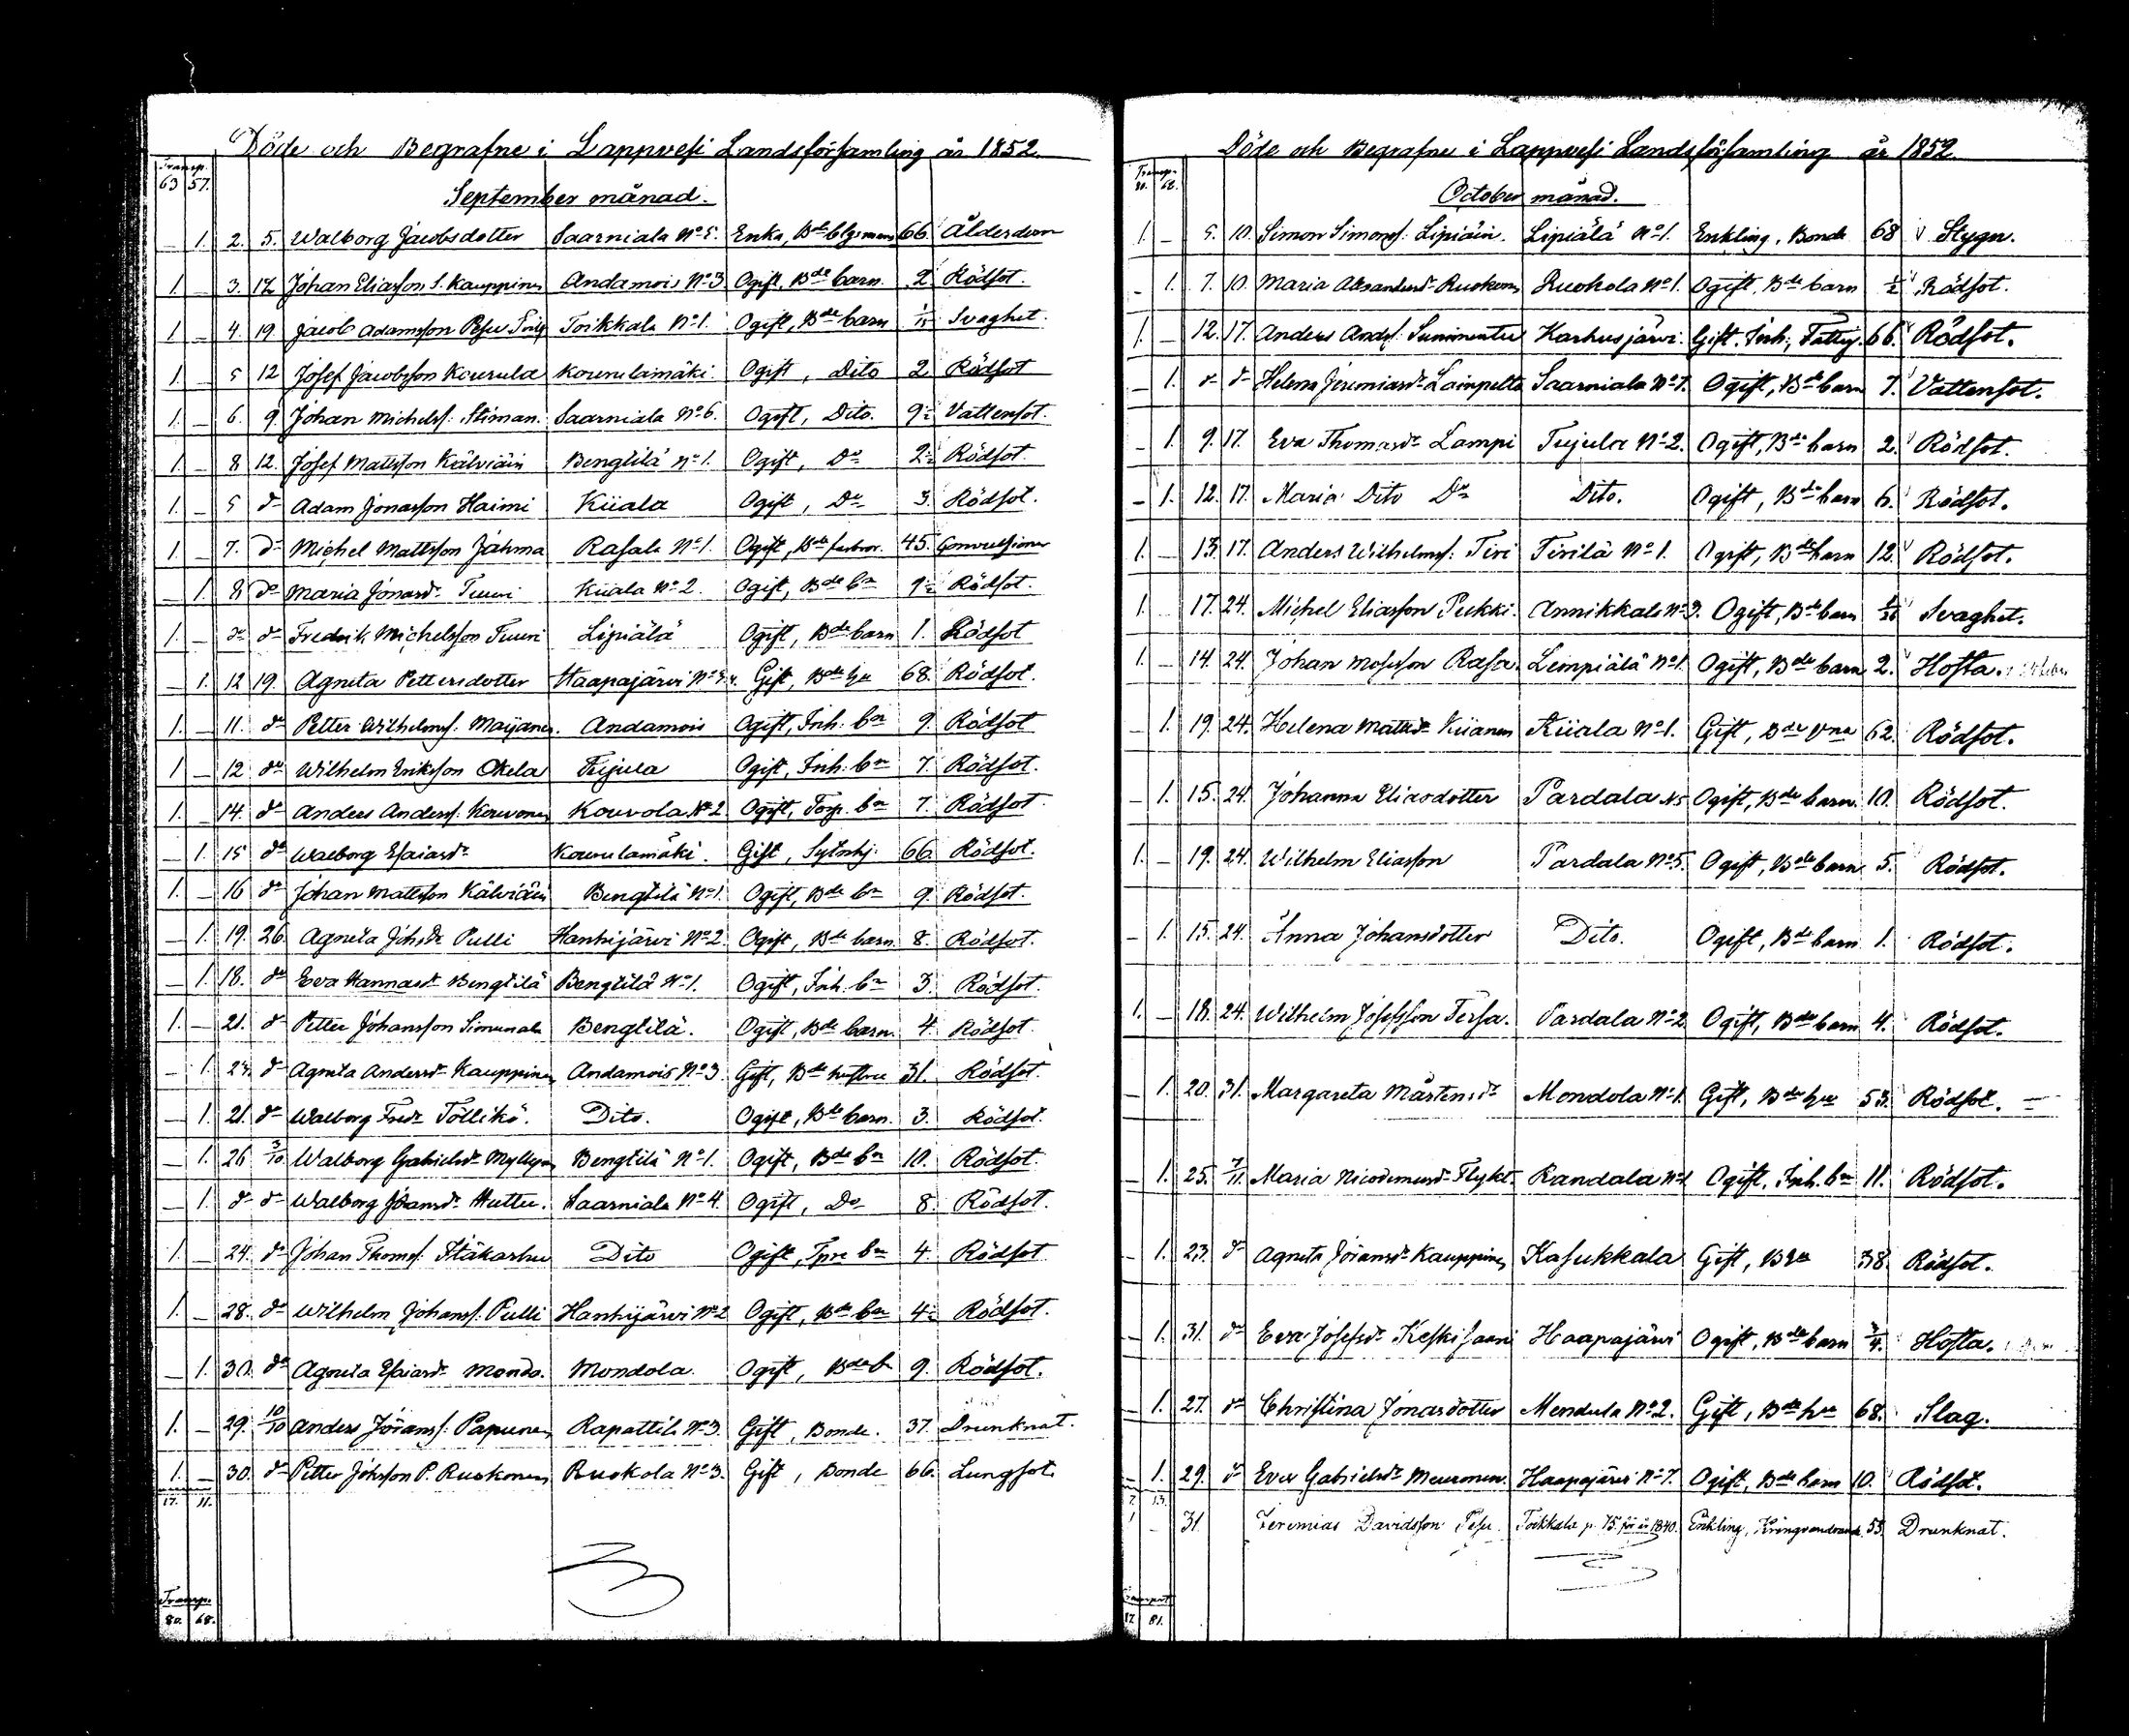 Döde och Begrafne i Lappvesi Landsförsamling år 1852.
Transp.
63 57.
September månad.
— 1. 2. 5. Walborg Jacobsdotter Saarniala No 5. Enka, 66. Ålderdom
1. — 3. 12 Johan Eliasson S. Kauppinen Andamois No 3 Ogift, Bde barn. 2 Rödsot.
1. — 4. 19. Jacob Adamsson Pesu Toikkala No 1. Ogift, Bde barn Svaghet.
1. — 5 12 Josef Jacobsson Kourula Kourulamäki. Ogift, Dito 2 Rödsot
1. — 6. 9. Johan Michelss. Stiman. Saarniala No 6. Ogift, Dito. 9 Vattensot.
1. — 8 12. Josef Mattsson Kälviäin Bengtilä No 1. Ogift, Do 2 Rödsot.
1. — 5 do Adam Jonasson Haimi Kiiala Ogift, Do 3. Rödsot.
1. — 7. do Michel Mattsson Jahma Rasala No 1. Ogift, Bde 45. Convulsioner
— 1. 8 do Maria Jonasdr Tuuri Kiiala No 2. Ogift, Bde bn Rödsot.
1. — do do Fredrik Michelsson Tuuri Lipiälä Ogift, Bde barn 1. Rödsot
— 1. 12 19. Agneta Pettersdotter Haapajärvi Gift, Bde hu 68. Rödsot.
1. — 11. do Petter Wilhelmss. Maijanen. Andamois Ogift, Inh. bn 9. Rödsot
1 — 12 do Wilhelm Eriksson Okela Tujula Ogift, Inh. bn 7. Rödsot.
1. — 14. do Anders Anderss. Kouvonen Kouvola No 2 Ogift, Torp. bn 7. Rödsot
— 1. 15 do Walborg Esaiasdr Kourulamäki. Gift, 66. Rödsot.
1. — 16 do Johan Mattsson Kälviäin Bengtilä No 1. Ogift, Bde bn 9. Rödsot.
— 1. 19. 26. Agneta Johsdr Pulli Hanhijärvi No 2 Ogift, Bde barn. 8. Rödsot.
— 1. 18. do Eva Hannasdr Bengtilä Bengtilä No 1. Ogift, Inh. bn 3. Rödsot.
1. — 21. do Petter Johansson Simunala Bengtilä. Ogift, Bde barn. 4. Rödsot.
— 1. 23. do Agneta Andersdr Kauppinen Andamois No 3. Gift, Bde hustru 31. Rödsot.
— 1. 21. do Walborg Fredr Tollikö. Dito. Ogift, Bde barn. 3. Rödsot.
— 1. 26 3/10 Walborg Gabrielsdr Myllynen Bengtilä No 1. Ogift, Bde bn 10. Rödsot.
— 1. do do Walborg Jöransdr Huttu. Saarniala No 4. Ogift, Do 8. Rödsot.
1. — 24. do Johan Thomss. Itäkarhu Dito Ogift, Tpre bn 4 Rödsot
1. — 28. do Wilhelm Johanss. Pulli Hanhijärvi No 2 Ogift, Bde bn 4 Rödsot.
— 1. 30. do Agneta Esaiasdr Mondo. Mondola. Ogift, Bde b 9. Rödsot.
1. — 29. 10/10 Anders Jöranss. Papunen Rapattila No 3. Gift, Bonde. 37. Drunknat.
1. — 30. do Petter Johsson P. Ruokonen Ruokola No 3. Gift, Bonde 66. Lungsot.
17. 11.
Transp.
80. 68.
Döde och Begrafne i Lappvesi Landsförsamling år 1852
Transp.
80. 68.
October månad.
1. — 5. 10. Simon Simonss. Lipiäin. Lipiälä No 1. Enkling, Bonde 68 Stygn.
— 1. 7. 10. Maria Alexandersdr Ruokonen Ruokola No 1. Ogift, Bde barn 1/2 Rödsot.
1. — 12. 17. Anders Andss. Karhusjärvi. Gift. Inh., Fattig. 66. Rödsot.
— 1. do do Helena Jeremiasdr Lainpelto Saarniala No 7. Ogift, Bde barn 7. Vattensot.
— 1. 9. 17. Eva Thomasdr Lampi Tujula No 2. Ogift, Bde barn 2. Rödsot.
— 1. 12. 17. Maria Dito Do Dito. Ogift, Bde barn 6. Rödsot.
1. — 13. 17. Anders Wilhelmss. Tiri Tirilä No 1. Ogift, Bde barn 12. Rödsot.
1. 17. 24. Michel Eliasson Pukki. Annikkala No 3. Ogift, Bde barn Svaghet.
1. — 14. 24. Johan Mosesson Rasa. Lempiälä No 1. Ogift, Bde barn 2. Hosta.
— 1. 19. 24. Helena Mattsdr Kiianen Kiiala No 1. Gift, Bde 62. Rödsot.
— 1. 15. 24. Johanna Eliasdotter Pardala No 5 Ogift, Bde barn. 10. Rödsot.
1. — 19. 24. Wilhelm Eliasson Pardala No 5. Ogift, Bde barn 5. Rödsot.
— 1. 15. 24. Anna Johansdotter Dito. Ogift, Bde barn 1. Rödsot.
1. — 18. 24. Wilhelm Josefsson Tersa. Pardala No 2 Ogift, Bde barn 4. Rödsot.
— 1. 20. 31. Margareta Mårtensdr Mondola No 1. Gift, Bde hu 53. Rödsot.
— 1. 25. 7/11. Maria Nicodemusdr Flykt. Randala No 1 Ogift, Inh. bn 11. Rödsot.
— 1. 23. do Agneta Jöransdr Kauppinen Kasukkala Gift, 38. Rödsot.
— 1. 31. do Eva Josefsdr Keskisaari Haapajärvi Ogift, Bde barn 3/4. Hosta.
— 1. 27. do Christina Jonasdotter Mendula No 2. Gift, Bde hu 68. Slag.
— 1. 29. do Eva Gabrielsdr Meuronen. Haapajärvi No 7. Ogift, Bde barn 10. Rödsot.
7. 13.
1 — 31. Jeremias Davidsson Pesu. Toikkala p. 75. för år 1840. Enkling, Kringvandrande. 55. Drunknat.
81.